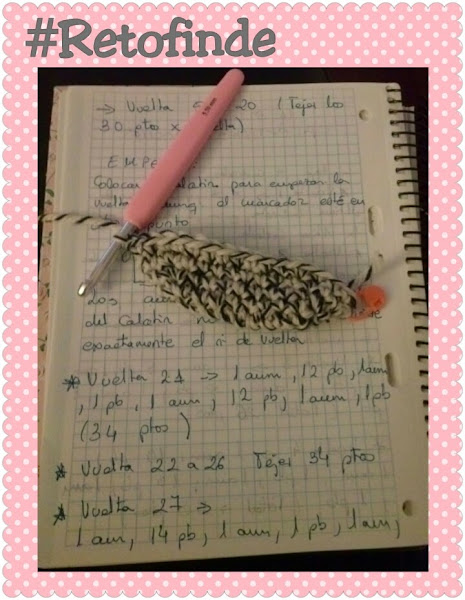 #Retofinde
→ Vuelta 20 (Tejer los
30 ptos x
EMPE
Colocar para empezar la
vuelta al marcador esté en
punto
Los
del Calatin
exactamente el nº de vuelta
* Vuelta 21 → 1 aum, 12 pb, 1 aum
, 1 pb, 1 aum, 12 pb, 1 aum, 1 pb
(34 ptos)
* Vuelta 22 a 26 Tejer 34 ptos
* Vuelta 27 →
1 aum, 14 pb, 1 aum, 1 pb, 1 aum,